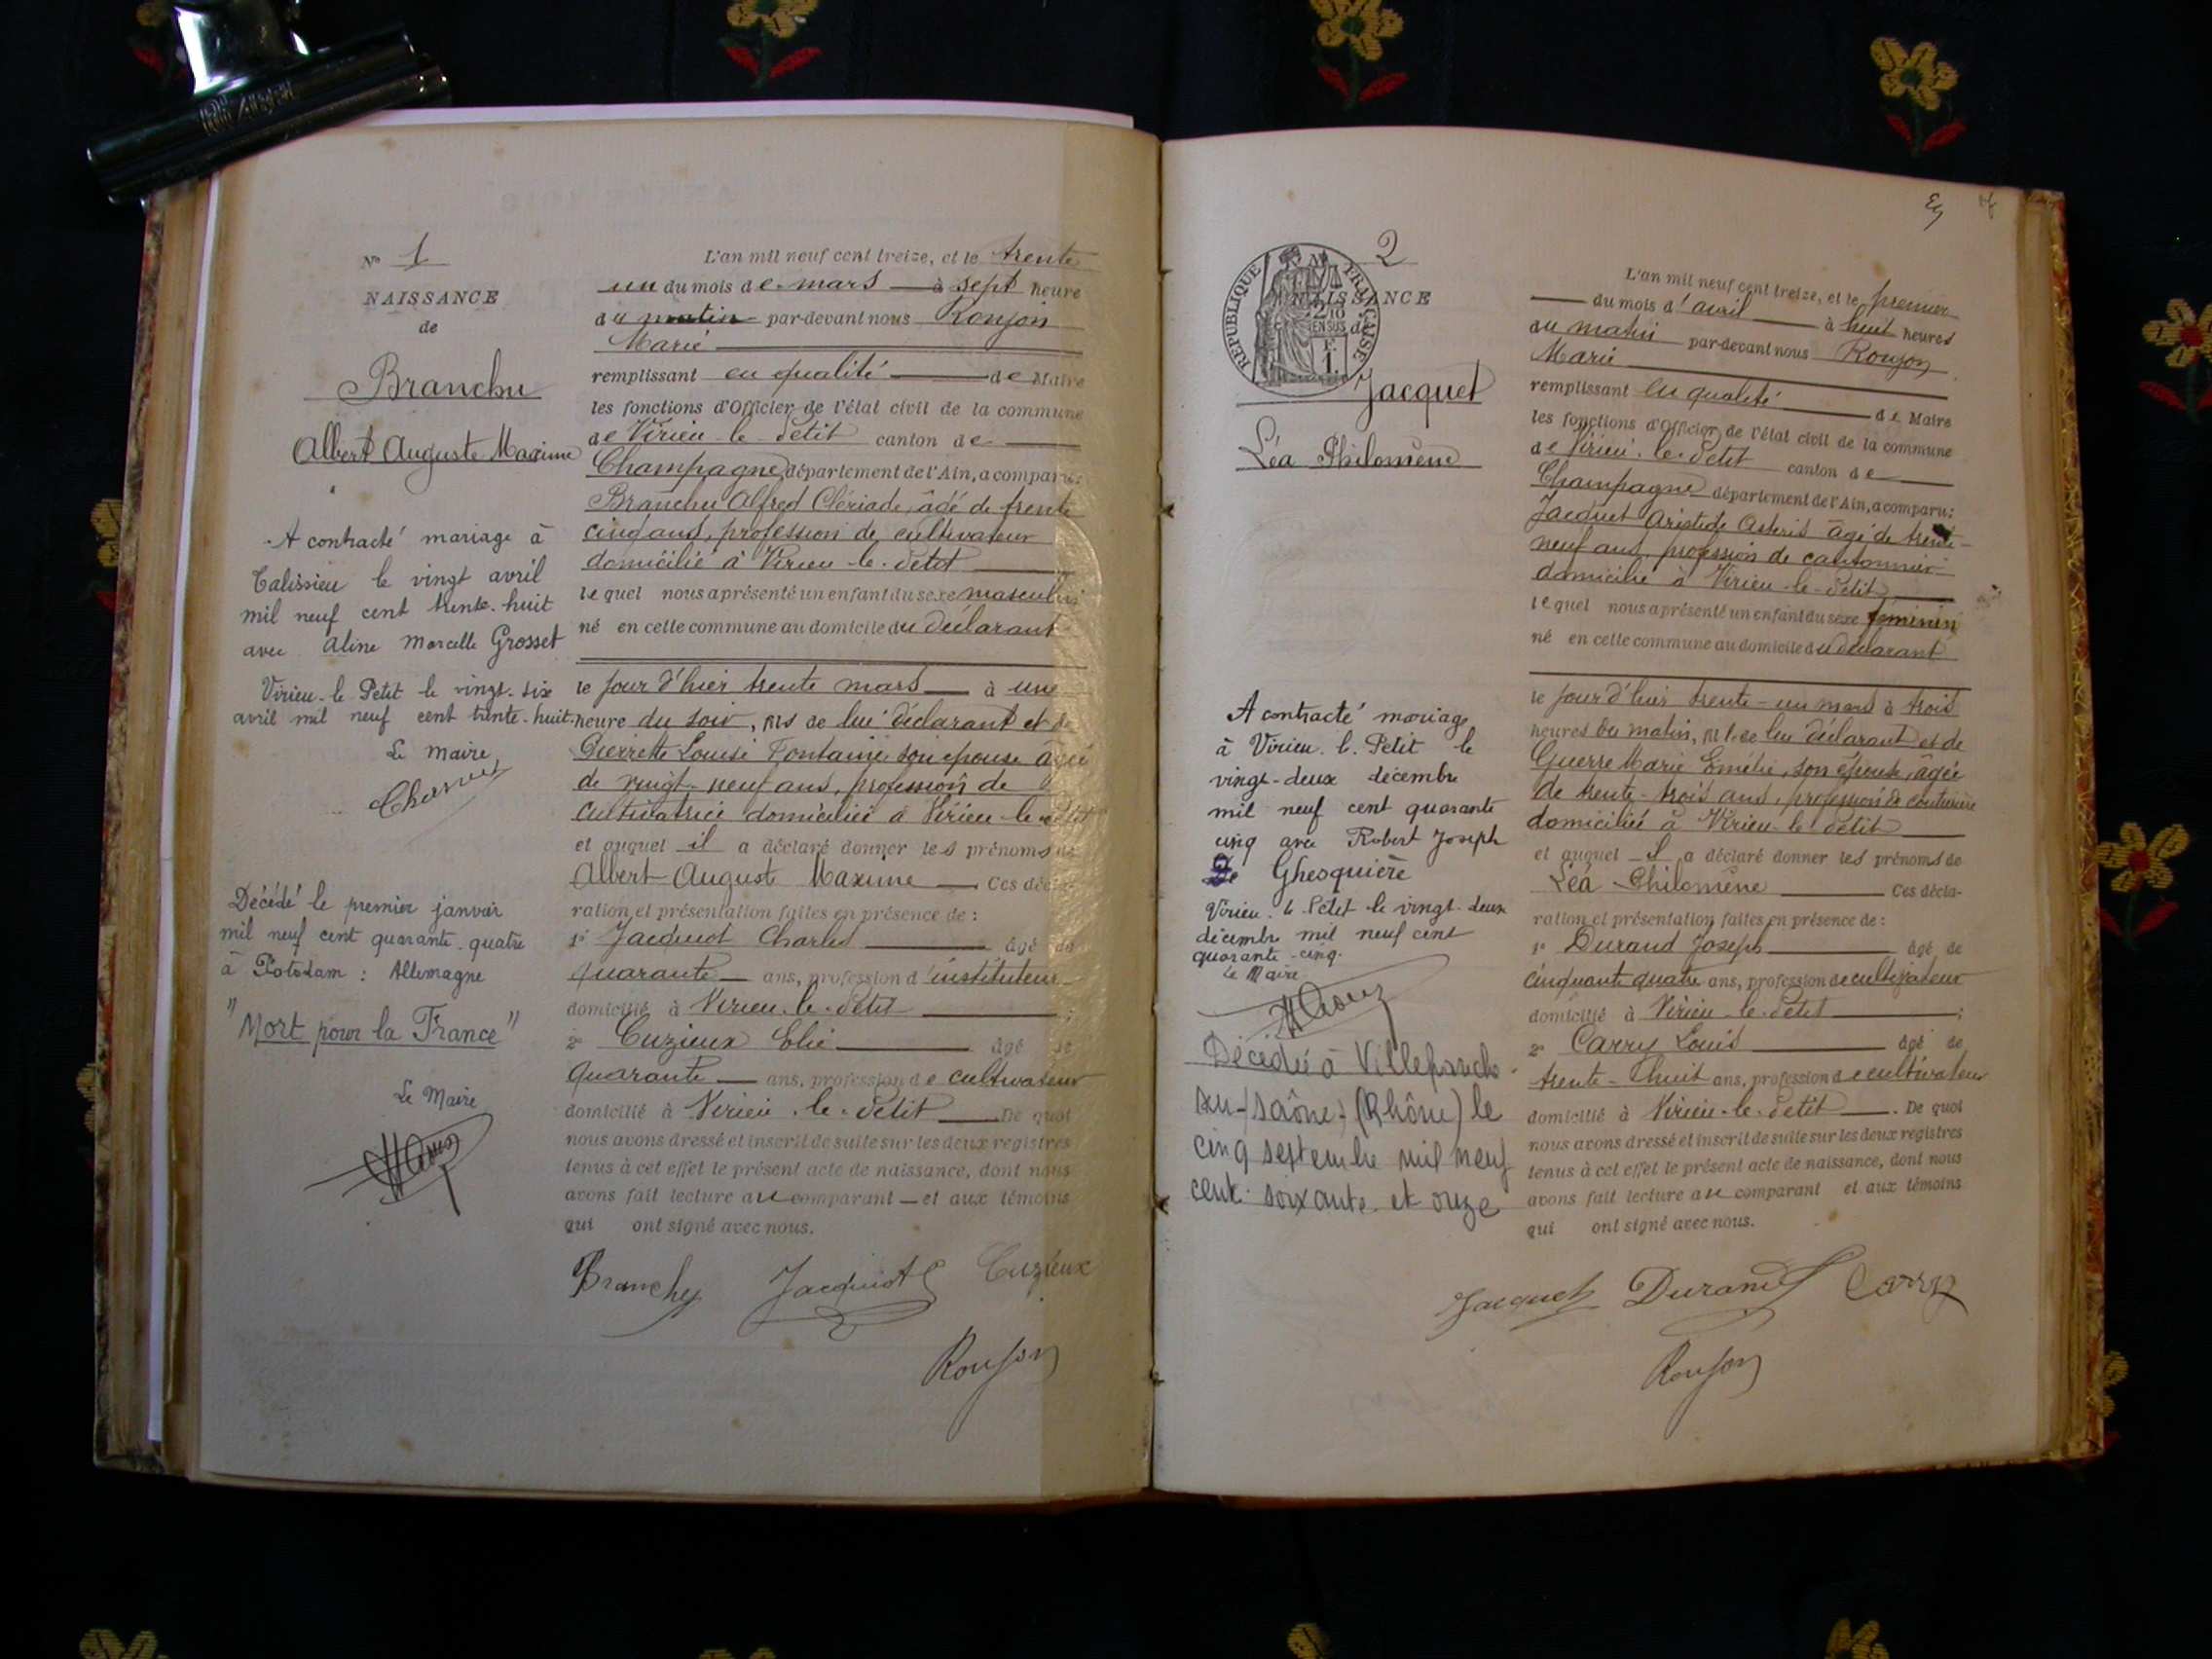 Nº 1
NAISSANCE
de
Branchu
Albert Auguste Maxime
A contracté mariage à
Talissieu le vingt avril
mil neuf cent trente-huit
avec Aline Marcelle Grosset
Virieu-le Petit le vingt-six
avril mil neuf cent trente-huit.
Le Maire
Décédé le premier janvier
mil neuf cent quarante-quatre
à Potsdam : Allemagne
"Mort pour la France"
Le Maire
L'an mil neuf cent treize, et le trente
un du mois de mars à sept heure
du matin par-devant nous Roujon
Marie
remplissant en qualité de Maire
les fonctions d'Officier de l'état civil de la commune
de Virieu-le-Petit canton de
Champagne département de l'Ain, a comparu:
Branchu Alfred Clériade, âgé de trente
cinq ans, profession de cultivateur
domicilié à Virieu-le-Petit
lequel nous a présenté un enfant du sexe masculin
né en cette commune au domicile du déclarant
le jour d'hier trente mars à une
heure du soir, fils de lui déclarant et de
Pierrette Louise Fontaine son épouse âgée
de vingt-neuf ans, profession de
cultivatrice domiciliée à Virieu-le-Petit
et auquel il a déclaré donner les prénoms de
Albert August Maxime Ces décla-
ration et présentation faites en présence de :
1º Jacquiot Charles âgé de
quarante ans, profession d'instituteur
domicilié à Virieu-le-Petit ;
2º Cuzieux Elie âgé de
quarante ans, profession de cultivateur
domicilié à Virieu-le-Petit. De quoi
nous avons dressé et inscrit de suite sur les deux registres
tenus à cet effet le présent acte de naissance, dont nous
avons fait lecture au comparant et aux témoins
qui ont signé avec nous.
Branchu Jacquiot Cuzieux
Roujon
2
NAISSANCE
de
RÉPUBLIQUE FRANÇAISE
2/10
EN SUS
F.
1.
Jacquet
Léa Philomène
A contracté mariage
à Virieu-le-Petit le
vingt-deux décembre
mil neuf cent quarante
cinq avec Robert Joseph
De Ghesquière
Virieu-le-Petit le vingt-deux
décembre mil neuf cent
quarante-cinq.
Le Maire
Décédée à Villefranche
sur-Saône-(Rhône) le
cinq septembre mil neuf
cent-soixante-et onze
L'an mil neuf cent treize, et le premier
du mois d'avril à huit heures
du matin par-devant nous Roujon
Marie
remplissant en qualité de Maire
les fonctions d'Officier de l'état civil de la commune
de Virieu-le-Petit canton de
Champagne département de l'Ain, a comparu:
Jacquet Aristide Astéris âgé de trente-
neuf ans, profession de cantonnier
domicilié à Virieu-le-Petit
lequel nous a présenté un enfant du sexe féminin
né en cette commune au domicile du déclarant
le jour d'hier trente-un mars à trois
heures du matin, fille de lui déclarant et de
Guerre Marie Emélie, son épouse, âgée
de trente-trois ans, profession de couturière
domiciliée à Virieu-le-Petit
et auquel il a déclaré donner les prénoms de
Léa Philomène Ces décla-
ration et présentation faites en présence de :
1º Durand Joseph âgé de
cinquante quatre ans, profession de cultivateur
domicilié à Virieu-le-Petit ;
2º Carry Louis âgé de
trente-huit ans, profession de cultivateur
domicilié à Virieu-le-Petit. De quoi
nous avons dressé et inscrit de suite sur les deux registres
tenus à cet effet le présent acte de naissance, dont nous
avons fait lecture au comparant et aux témoins
qui ont signé avec nous.
Jacquet Durand Carry
Roujon